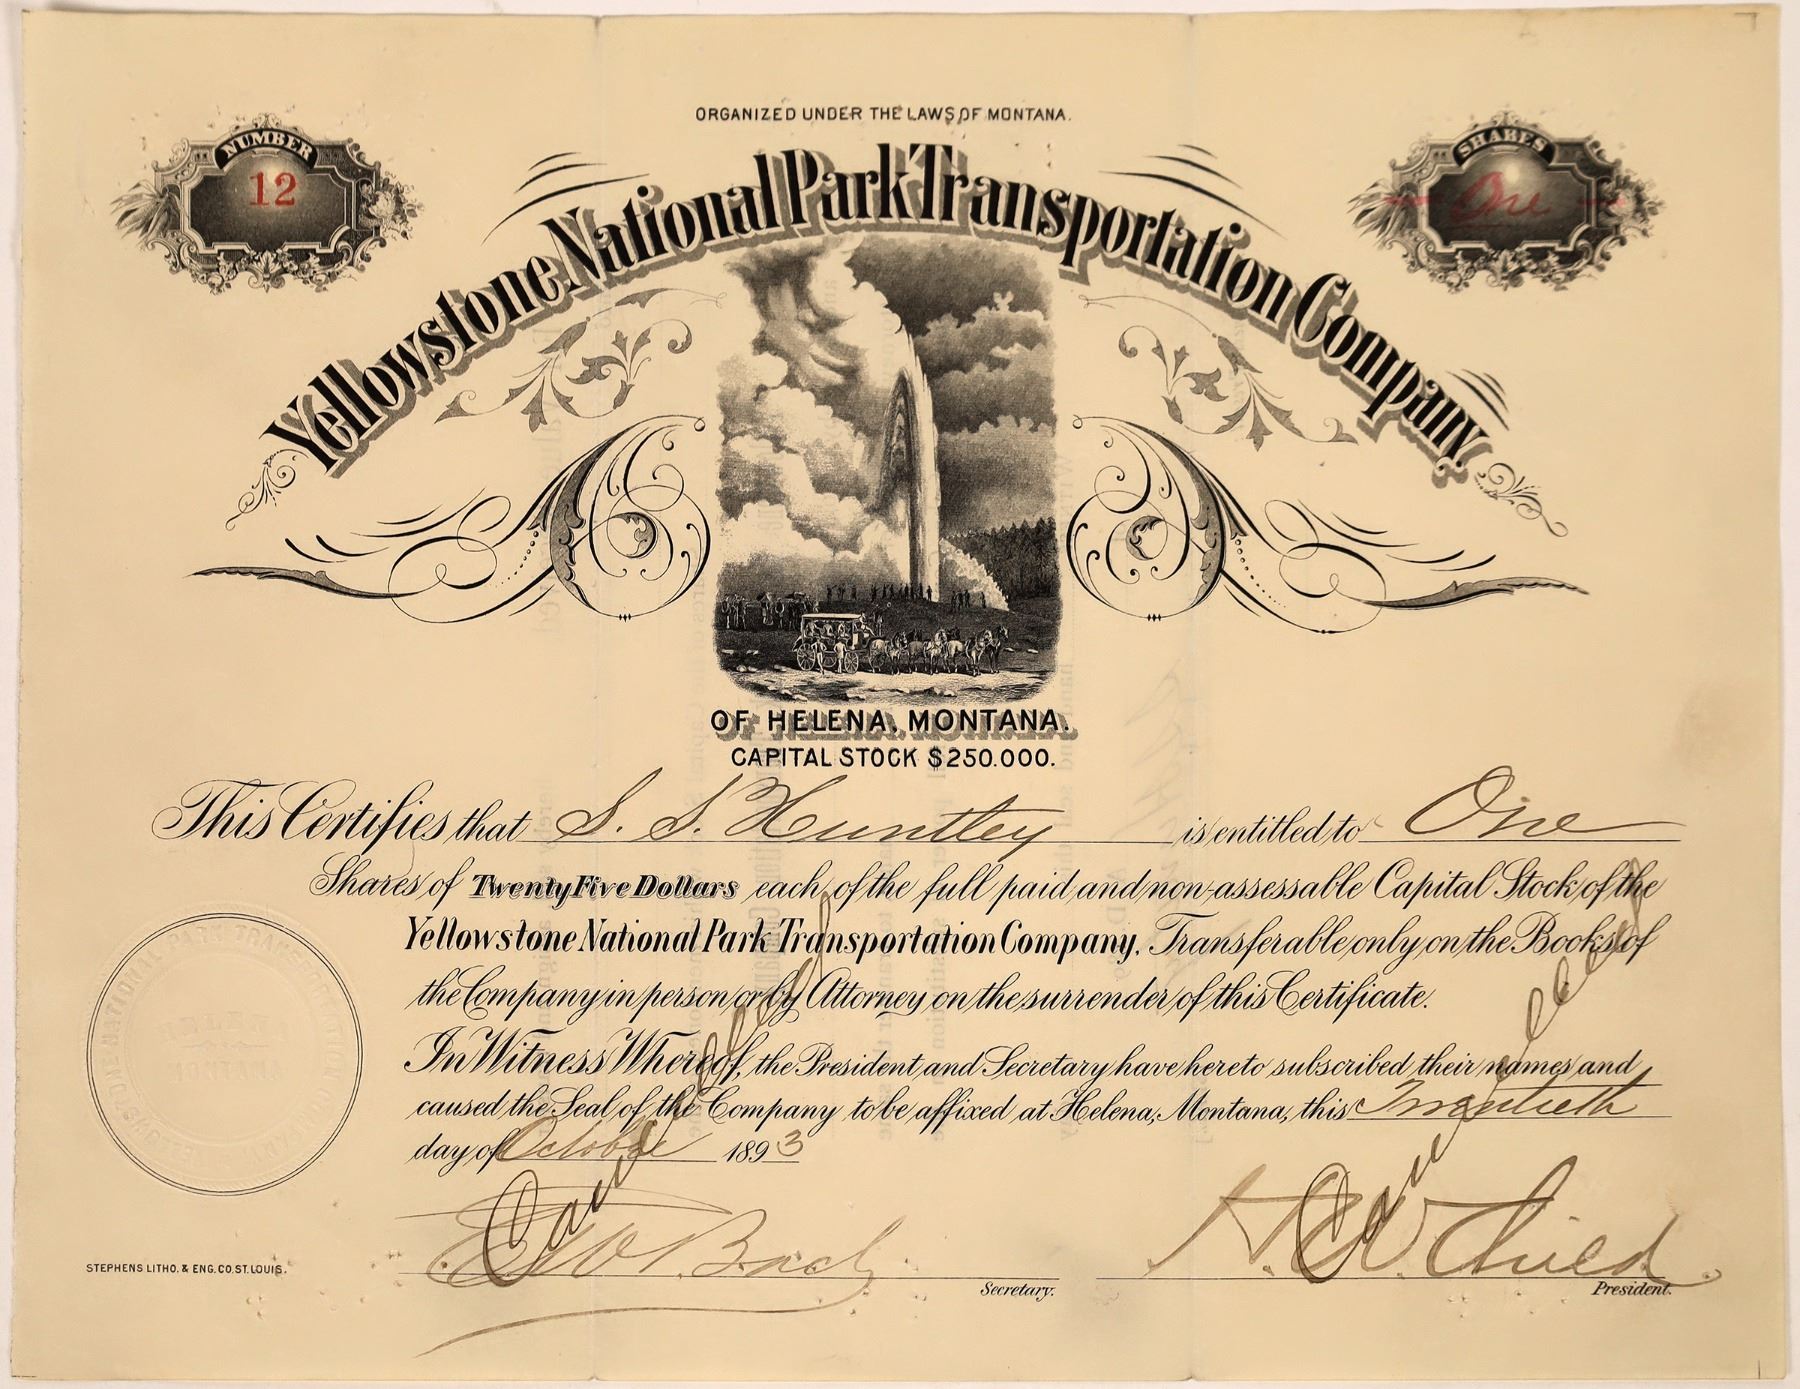 ORGANIZED UNDER THE LAWS OF MONTANA.
NUMBER
12
SHARES
One
Yellowstone National Park Transportation Company,
OF HELENA, MONTANA.
CAPITAL STOCK $250.000.
This Certifies that S. S. Huntley is entitled to One
Shares of Twenty Five Dollars each, of the full paid and non-assessable Capital Stock of the
Yellowstone National Park Transportation Company, Transferable only on the Books of
the Company in person or by Attorney on the surrender of this Certificate.
In Witness Whereof, the President and Secretary have hereto subscribed their names and
caused the Seal of the Company to be affixed at Helena, Montana, this Twentieth
day of October 1893
Cancelled
Cancelled
E. W. Bach
H. W. Child
Secretary.
President.
STEPHENS LITHO. & ENG. CO. ST. LOUIS.